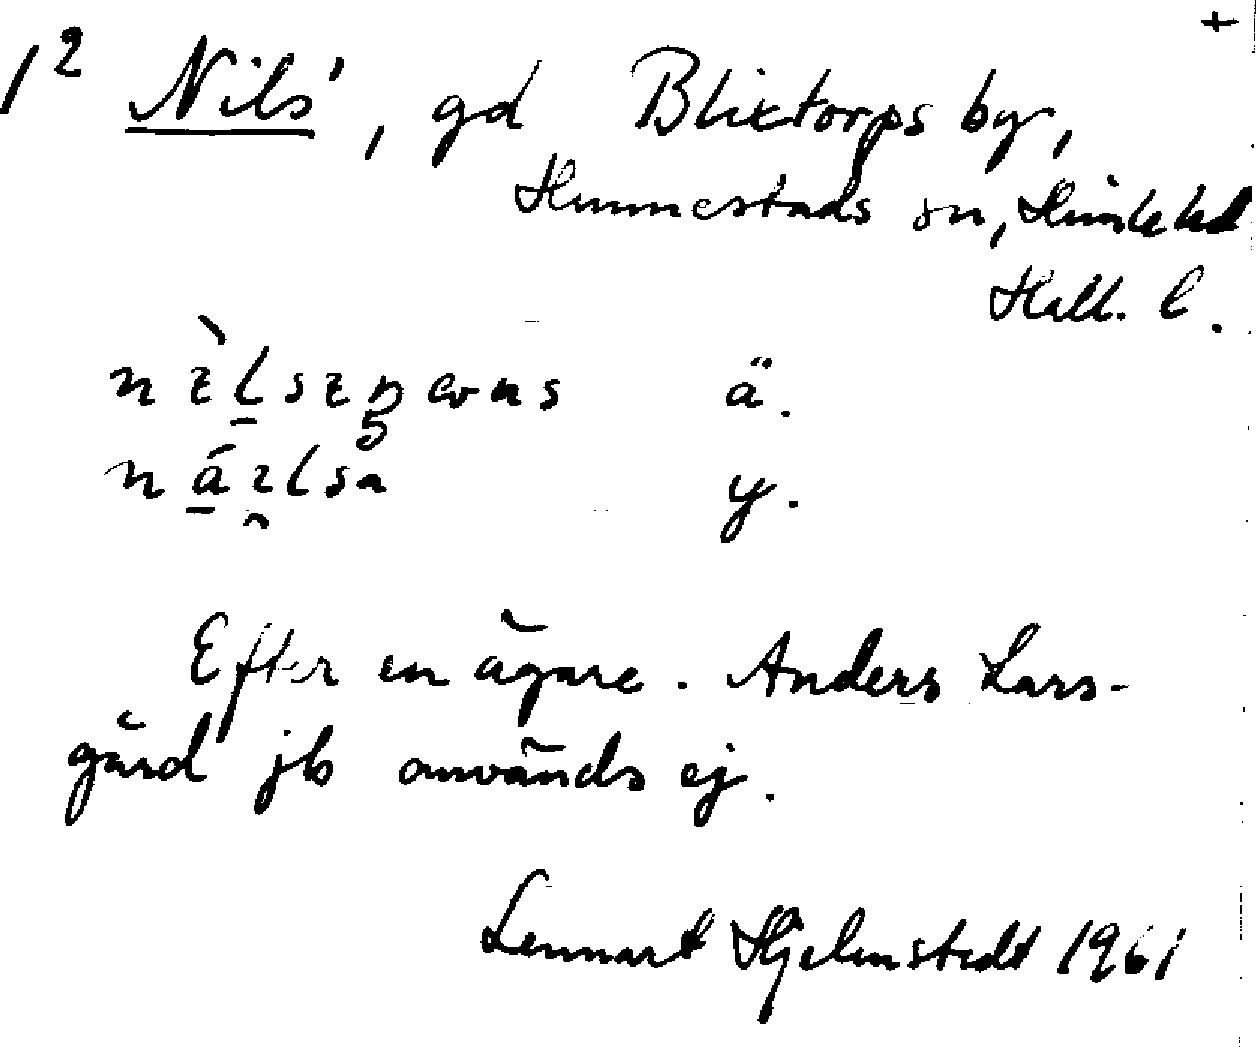 +
1² Nils', gd Blixtorps by,
Hunnestads sn, Himle hd
Hall. l.
ä.
y.
Efter en ägare. Anders Lars-
gård jb används ej.
Lennart Hjelmstedt 1961